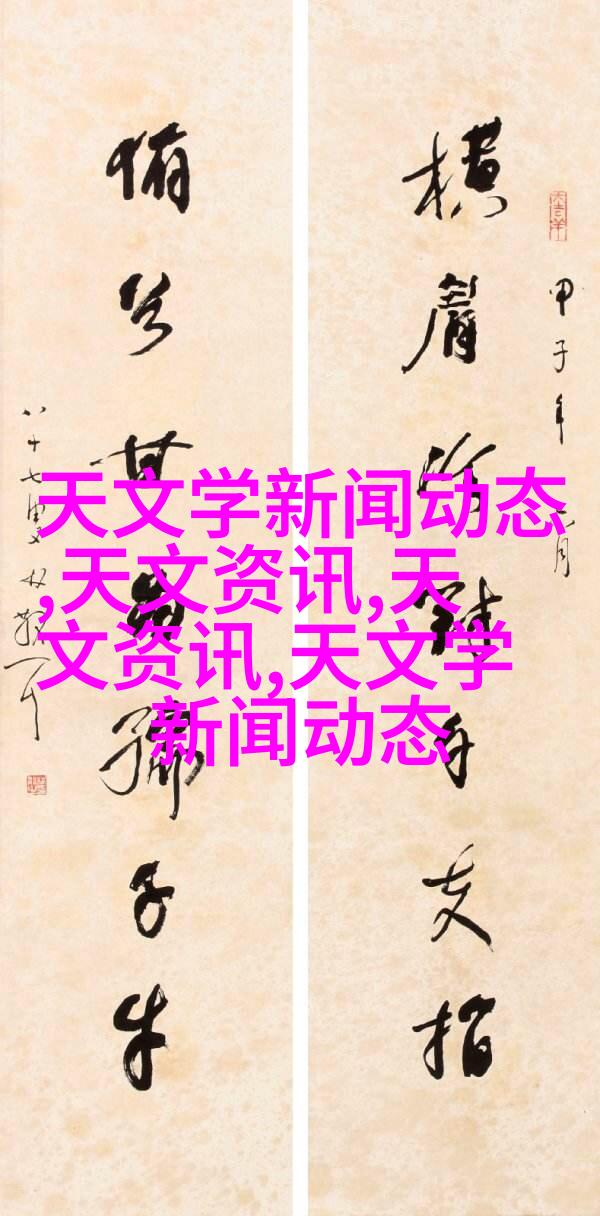 甲子年月
横眉冷對千夫指
俯首甘為孺子牛
八十七叟林散耳
天文学新闻动态
,天文资讯,天
文资讯,天文学
新闻动态